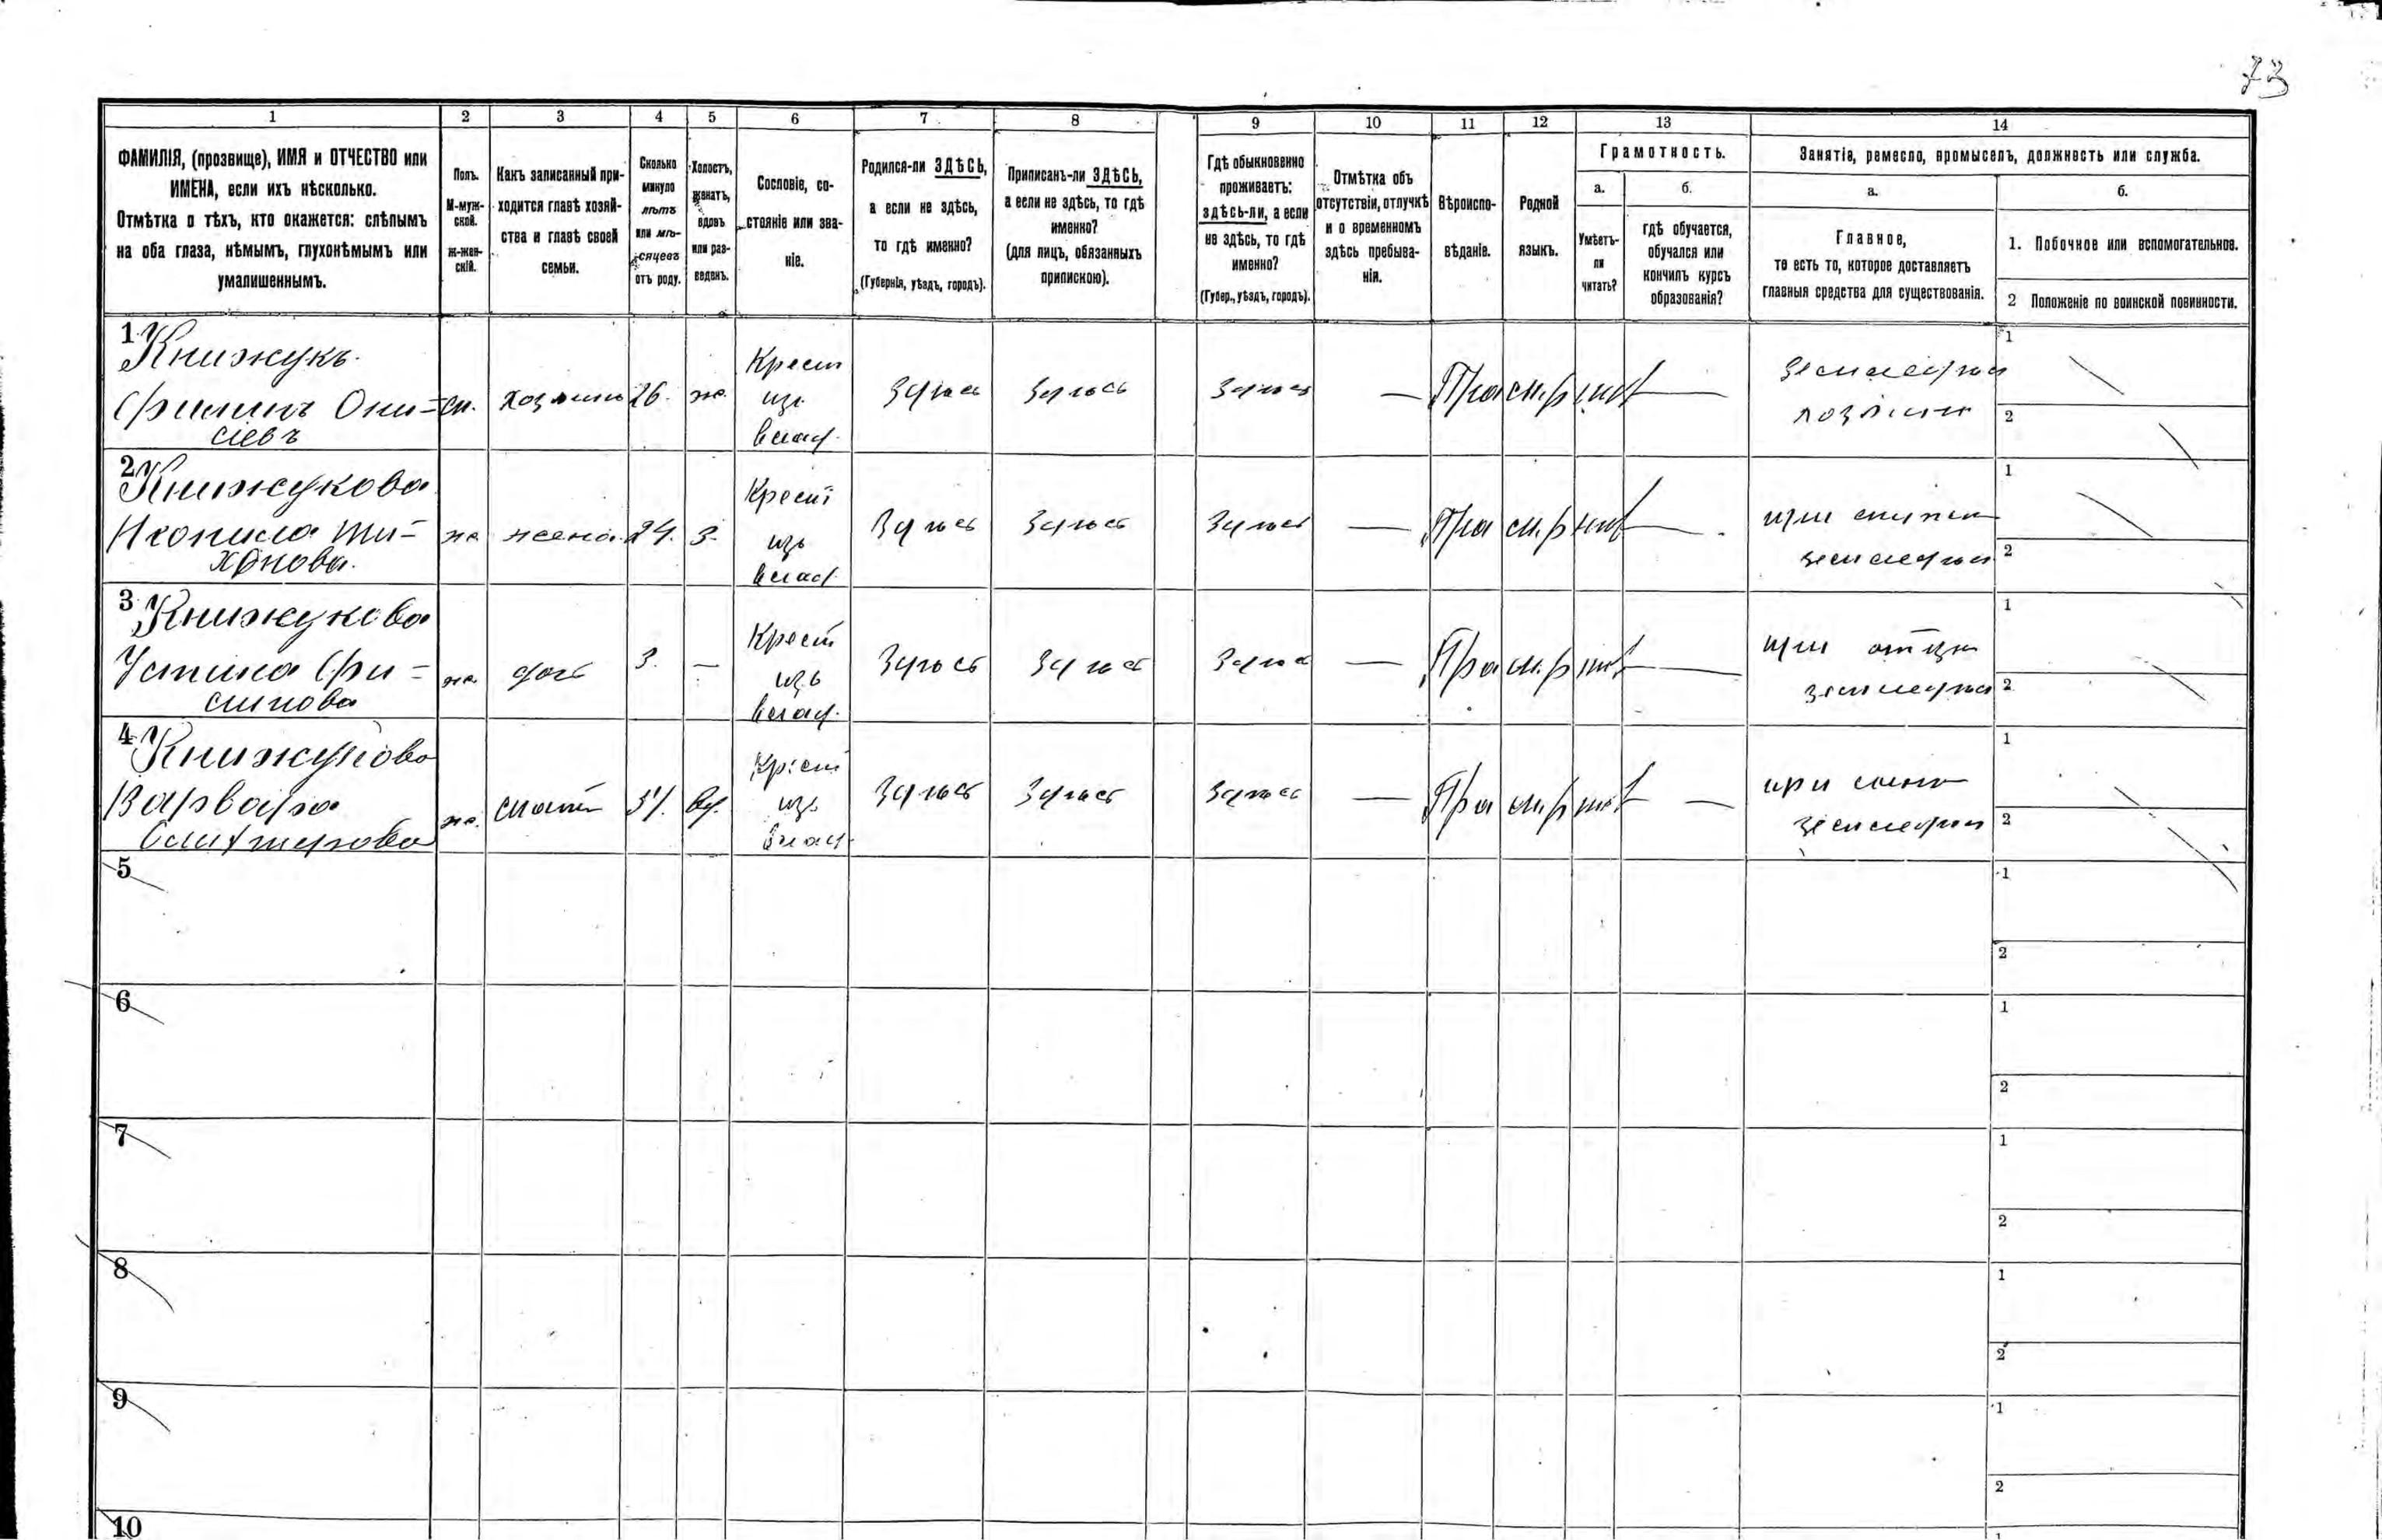 73
1 2 3 4 5 6 7 8 9 10 11 12 13 14
ФАМИЛІЯ, (прозвище), ИМЯ и ОТЧЕСТВО или
ИМЕНА, если ихъ нѣсколько.
Отмѣтка о тѣхъ, кто окажется: слѣпымъ
на оба глаза, нѣмымъ, глухонѣмымъ или
умалишеннымъ.
Полъ.
М-муж-
ской.
ж-жен-
скій.
Какъ записанный при-
ходится главѣ хозяй-
ства и главѣ своей
семьи.
Сколько
минуло
лѣтъ
или мѣ-
сяцевъ
отъ роду.
Холостъ,
женатъ,
вдовъ
или раз-
веденъ.
Сословіе, со-
стояніе или зва-
ніе.
Родился-ли ЗДѢСЬ,
а если не здѣсь,
то гдѣ именно?
(Губернія, уѣздъ, городъ).
Приписанъ-ли ЗДѢСЬ,
а если не здѣсь, то гдѣ
именно?
(для лицъ, обязанныхъ
припискою).
Гдѣ обыкновенно
проживаетъ:
здѣсь-ли, а если
не здѣсь, то гдѣ
именно?
(Губер., уѣздъ, городъ).
Отмѣтка объ
отсутствіи, отлучкѣ
и о временномъ
здѣсь пребыва-
ніи.
Вѣроиспо-
вѣданіе.
Родной
языкъ.
Грамотность.
а.
Умѣетъ-
ли
читать?
б.
гдѣ обучается,
обучался или
кончилъ курсъ
образованія?
Занятіе, ремесло, промыселъ, должность или служба.
а.
Главное,
то есть то, которое доставляетъ
главныя средства для существованія.
б.
1. Побочное или вспомогательное.
2 Положеніе по воинской повинности.
1 Книжукъ
Филипъ Они=
сіевъ
м. хозяинъ 26. ж.
Крест
изъ
влад.
Здѣсь Здѣсь Здѣсь — Пра м.р нѣт —
земледѣл
хозяин
1
2
2 Книжукова
Ти=
хонова.
ж жена 24. З.
Крест
изъ
влад.
Здѣсь Здѣсь Здѣсь — Пра м.р нѣт —
при
земледѣл
1
2
3 Книжукова
Устина Фи=
липова
ж. дочь 3. —
Крест
изъ
влад.
Здѣсь Здѣсь Здѣсь — Пра м.р нѣт —
при отцѣ
земледѣл
1
2
4 Книжукова
Варвара
ж. мать вд.
Крест
изъ
влад.
Здѣсь Здѣсь Здѣсь — Пра м.р нѣт —
при сынѣ
земледѣл
1
2
5
1
2
6
1
2
7
1
2
8
1
2
9
1
2
10
1